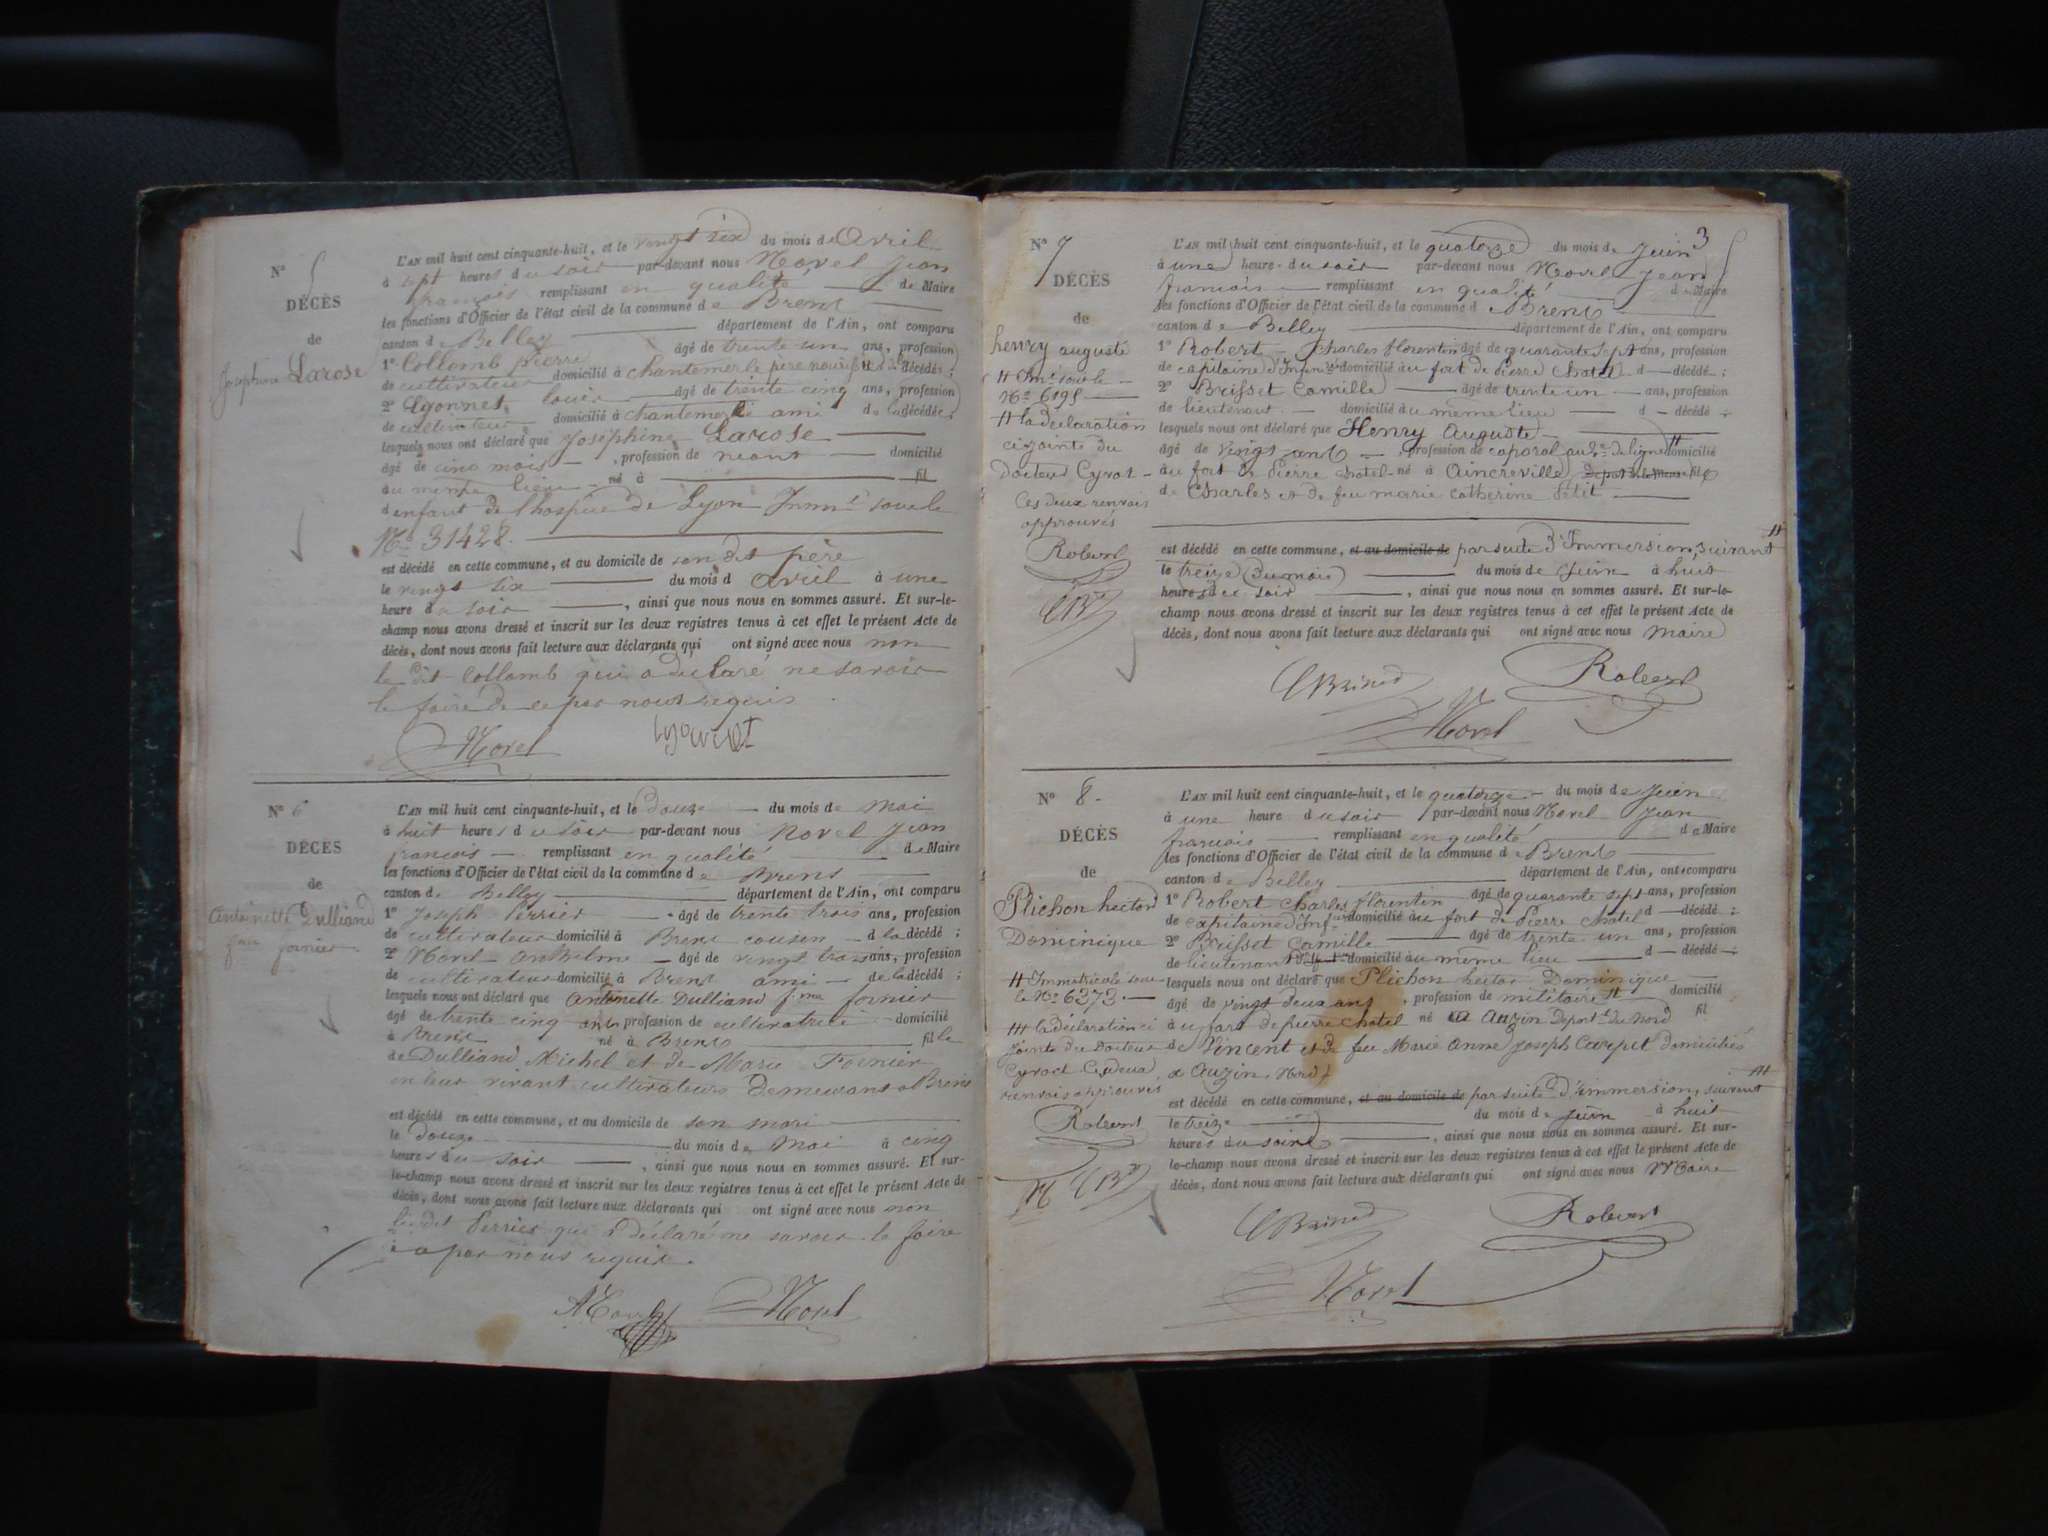 N° 5
DÉCÈS
de
Joséphine Larose
L'AN mil huit cent cinquante-huit, et le vingt six du mois de Avril
à sept heures du soir par-devant nous Morel Jean
françois remplissant en qualité de Maire
les fonctions d'Officier de l'état civil de la commune de Brens
canton de Belley département de l'Ain, ont comparu
1° Collomb pierre âgé de trente un ans, profession
de cultivateur domicilié à chantemerle père nourricier d la décédée ;
2° Lyonnet, louis âgé de trente cinq ans, profession
de cultivateur domicilié à chantemerle ami de la décédée ;
lesquels nous ont déclaré que Joséphine Larose
âgé de cinq mois , profession de néant domicilié
au même lieu né à fil
d enfant de l'hospice de Lyon Imm.é sous le
N° 31428.
est décédé en cette commune, et au domicile de son dit père
le vingt six du mois d avril à une
heure du soir , ainsi que nous nous en sommes assuré. Et sur-le-
champ nous avons dressé et inscrit sur les deux registres tenus à cet effet le présent Acte de
décès, dont nous avons fait lecture aux déclarants qui ont signé avec nous non
le dit Collomb qui a déclaré ne savoir
le faire de ce par nous requis.
Morel Lyonnet
N° 6
DÉCÈS
de
Antoinette Dulliand
f.me fornier
L'AN mil huit cent cinquante-huit, et le douze du mois de Mai
à huit heures du soir par-devant nous Morel Jean
francois remplissant en qualité de Maire
les fonctions d'Officier de l'état civil de la commune de Brens
canton de Belley département de l'Ain, ont comparu
1° Joseph Perrier âgé de trente trois ans, profession
de cultivateur domicilié à Brens cousin d la décédé ;
2° Morel Anthelme âgé de vingt trois ans, profession
de cultivateur domicilié à Brens ami de la décédé ;
lesquels nous ont déclaré que Antoinette Dulliand f.me fornier
âgé de trente cinq ans profession de cultivatrice domicilié
à Brens né à Brens fille
de Dulliand Michel et de Marie Fornier
en leur vivant cultivateurs demeurant à Brens
est décédé en cette commune, et au domicile de son mari
le douze du mois de Mai à cinq
heures du soir , ainsi que nous nous en sommes assuré. Et sur-
le-champ nous avons dressé et inscrit sur les deux registres tenus à cet effet le présent Acte de
décès, dont nous avons fait lecture aux déclarants qui ont signé avec nous non
le dit Perrier qui a déclaré ne savoir le faire
par nous requis.
Morel
3
N° 7
DÉCÈS
de
henry auguste
# Im.é sous le
N° 6195
# la déclaration
cijointe du
docteur Cyrot
Ces deux renvois
approuvés
Robert
CB
L'AN mil huit cent cinquante-huit, et le quatorze du mois de Juin
à une heure du soir par-devant nous Morel Jean
francois remplissant en qualité de Maire
les fonctions d'Officier de l'état civil de la commune de Brens
canton de Belley département de l'Ain, ont comparu
1° Robert Charles florentin âgé de quarante sept ans, profession
de capitaine d'Inf.rie domicilié au fort de Pierre Chatel d décédé ;
2° Brisset Camille âgé de trente un ans, profession
de lieutenant domicilié au même lieu d décédé ;
lesquels nous ont déclaré que Henry Auguste
âgé de vingt ans , profession de caporal au de ligne # domicilié
au fort de Pierre Chatel né à Aincreville fils
de Charles et de feu marie catherine Petit
est décédé en cette commune, et au domicile de par suite d'Immersion, suivant #
le treize (du mois) du mois de Juin à huit
heures du soir , ainsi que nous nous en sommes assuré. Et sur-le-
champ nous avons dressé et inscrit sur les deux registres tenus à cet effet le présent Acte de
décès, dont nous avons fait lecture aux déclarants qui ont signé avec nous Maire
CBrisset Robert
Morel
N° 8.
DÉCÈS
de
Plichon hector
Dominique
# Immatricole sous
le N° 6373.
## la déclaration ci
jointe du Docteur
Cyrot Ces deux
renvois approuvés
Robert
M CB
L'AN mil huit cent cinquante-huit, et le quatorze du mois de Juin
à une heure du soir par-devant nous Morel Jean
francois remplissant en qualité de Maire
les fonctions d'Officier de l'état civil de la commune de Brens
canton de Belley département de l'Ain, ont comparu
1° Robert Charles florentin âgé de quarante sept ans, profession
de capitaine d'Inf.rie domicilié au fort de Pierre Chatel d décédé ;
2° Brisset Camille âgé de trente un ans, profession
de lieutenant domicilié au même lieu d décédé ;
lesquels nous ont déclaré que Plichon hector Dominique
âgé de vingt deux ans , profession de militaire # domicilié
au fort de pierre chatel né à Anzin Depart.t du Nord fil
de Vincent et de feu Marie Anne Joseph Carpit domiciliés
à Anzin, Nord
est décédé en cette commune, et au domicile de par suite d'immersion, suivant ##
le treize du mois de Juin à huit
heures du soir , ainsi que nous nous en sommes assuré. Et sur-
le-champ nous avons dressé et inscrit sur les deux registres tenus à cet effet le présent Acte de
décès, dont nous avons fait lecture aux déclarants qui ont signé avec nous Maire
CBrisset Robert
Morel